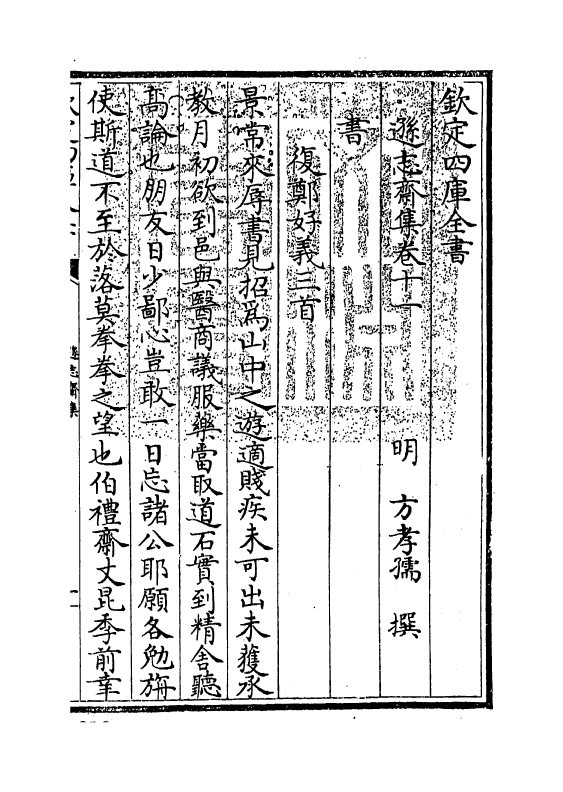 欽定四庫全書
遜志齋集卷十一
明 方孝孺 撰
書
復鄭好義三首
景常來辱書見招為山中之遊適賤疾未可出未獲承
教月初欲到邑與醫商議服藥當取道石實到精舍聽
高論也朋友日少鄙心豈敢一日忘諸公耶願各勉旃
使斯道不至於落莫拳拳之望也伯禮齋丈昆季前幸
遜志齋集